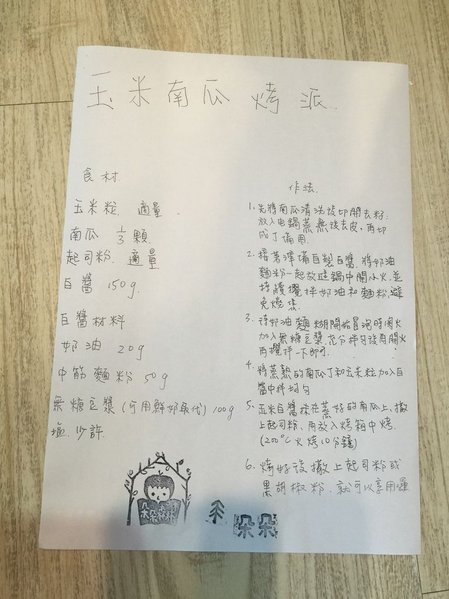 玉米南瓜烤派
食材
玉米粒 適量
南瓜 1/3顆
起司粉 適量
白醬 150g
白醬材料
奶油 20g
中筋麵粉 50g
無糖豆漿(可用鮮奶取代) 100g
塩 少許
作法
1. 先將南瓜清洗後切開去籽
放入電鍋蒸熟後去皮,再切
成丁備用
2. 接著準備自製白醬,將奶油
麵粉一起放進鍋中開小火,並
持續攪拌奶油和麵粉,避
免燒焦
3. 待奶油麵糊開始冒泡時關火
加入無糖豆漿充分拌勻後再開火
再攪拌一下即可
4. 將蒸熟的南瓜丁和玉米粒加入白
醬中拌均勻
5. 玉米白醬放在蒸好的南瓜上,撒
上起司粉,再放入烤箱中烤
(200°C火烤10分鐘)
6. 烤好後撒上起司粉或
黑胡椒粉,就可以享用囉
朵朵森林
朵朵